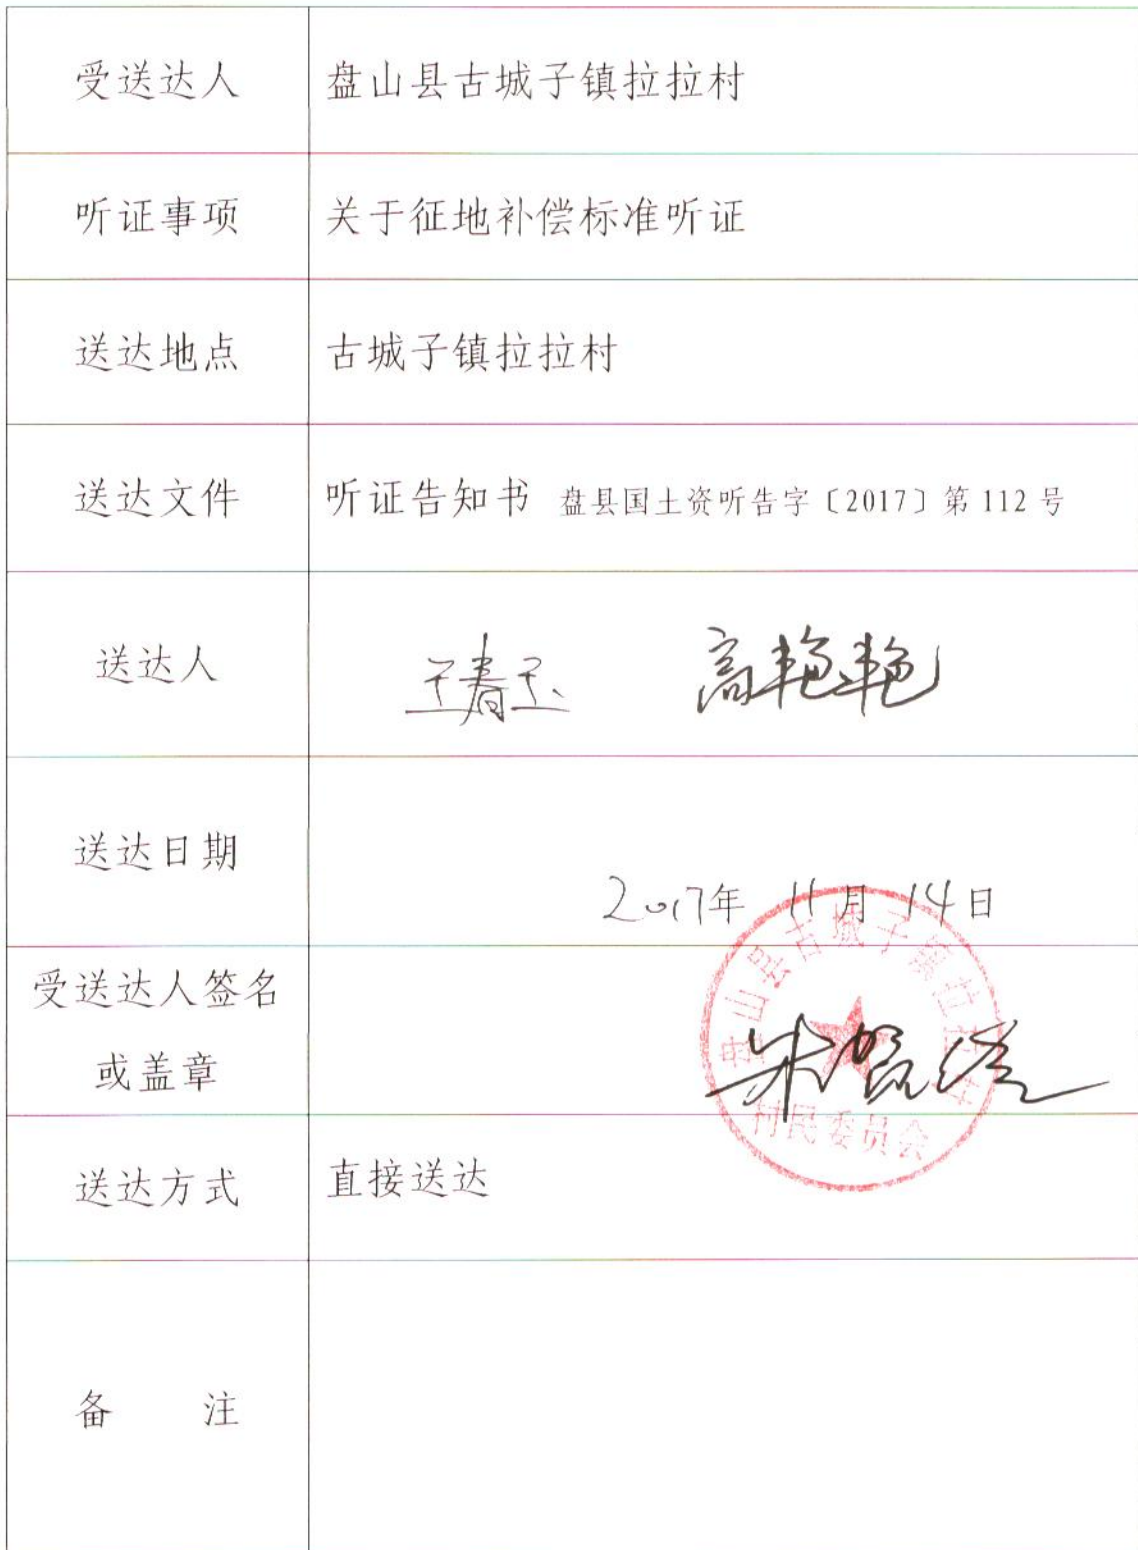 受送达人 盘山县古城子镇拉拉村
听证事项 关于征地补偿标准听证
送达地点 古城子镇拉拉村
送达文件 听证告知书 盘县国土资听告字〔2017〕第 112 号
送达人 王春玉 高艳艳
送达日期 2017年 11月 14日
受送达人签名
或盖章
盘山县古城子镇拉拉村
村民委员会
送达方式 直接送达
备 注